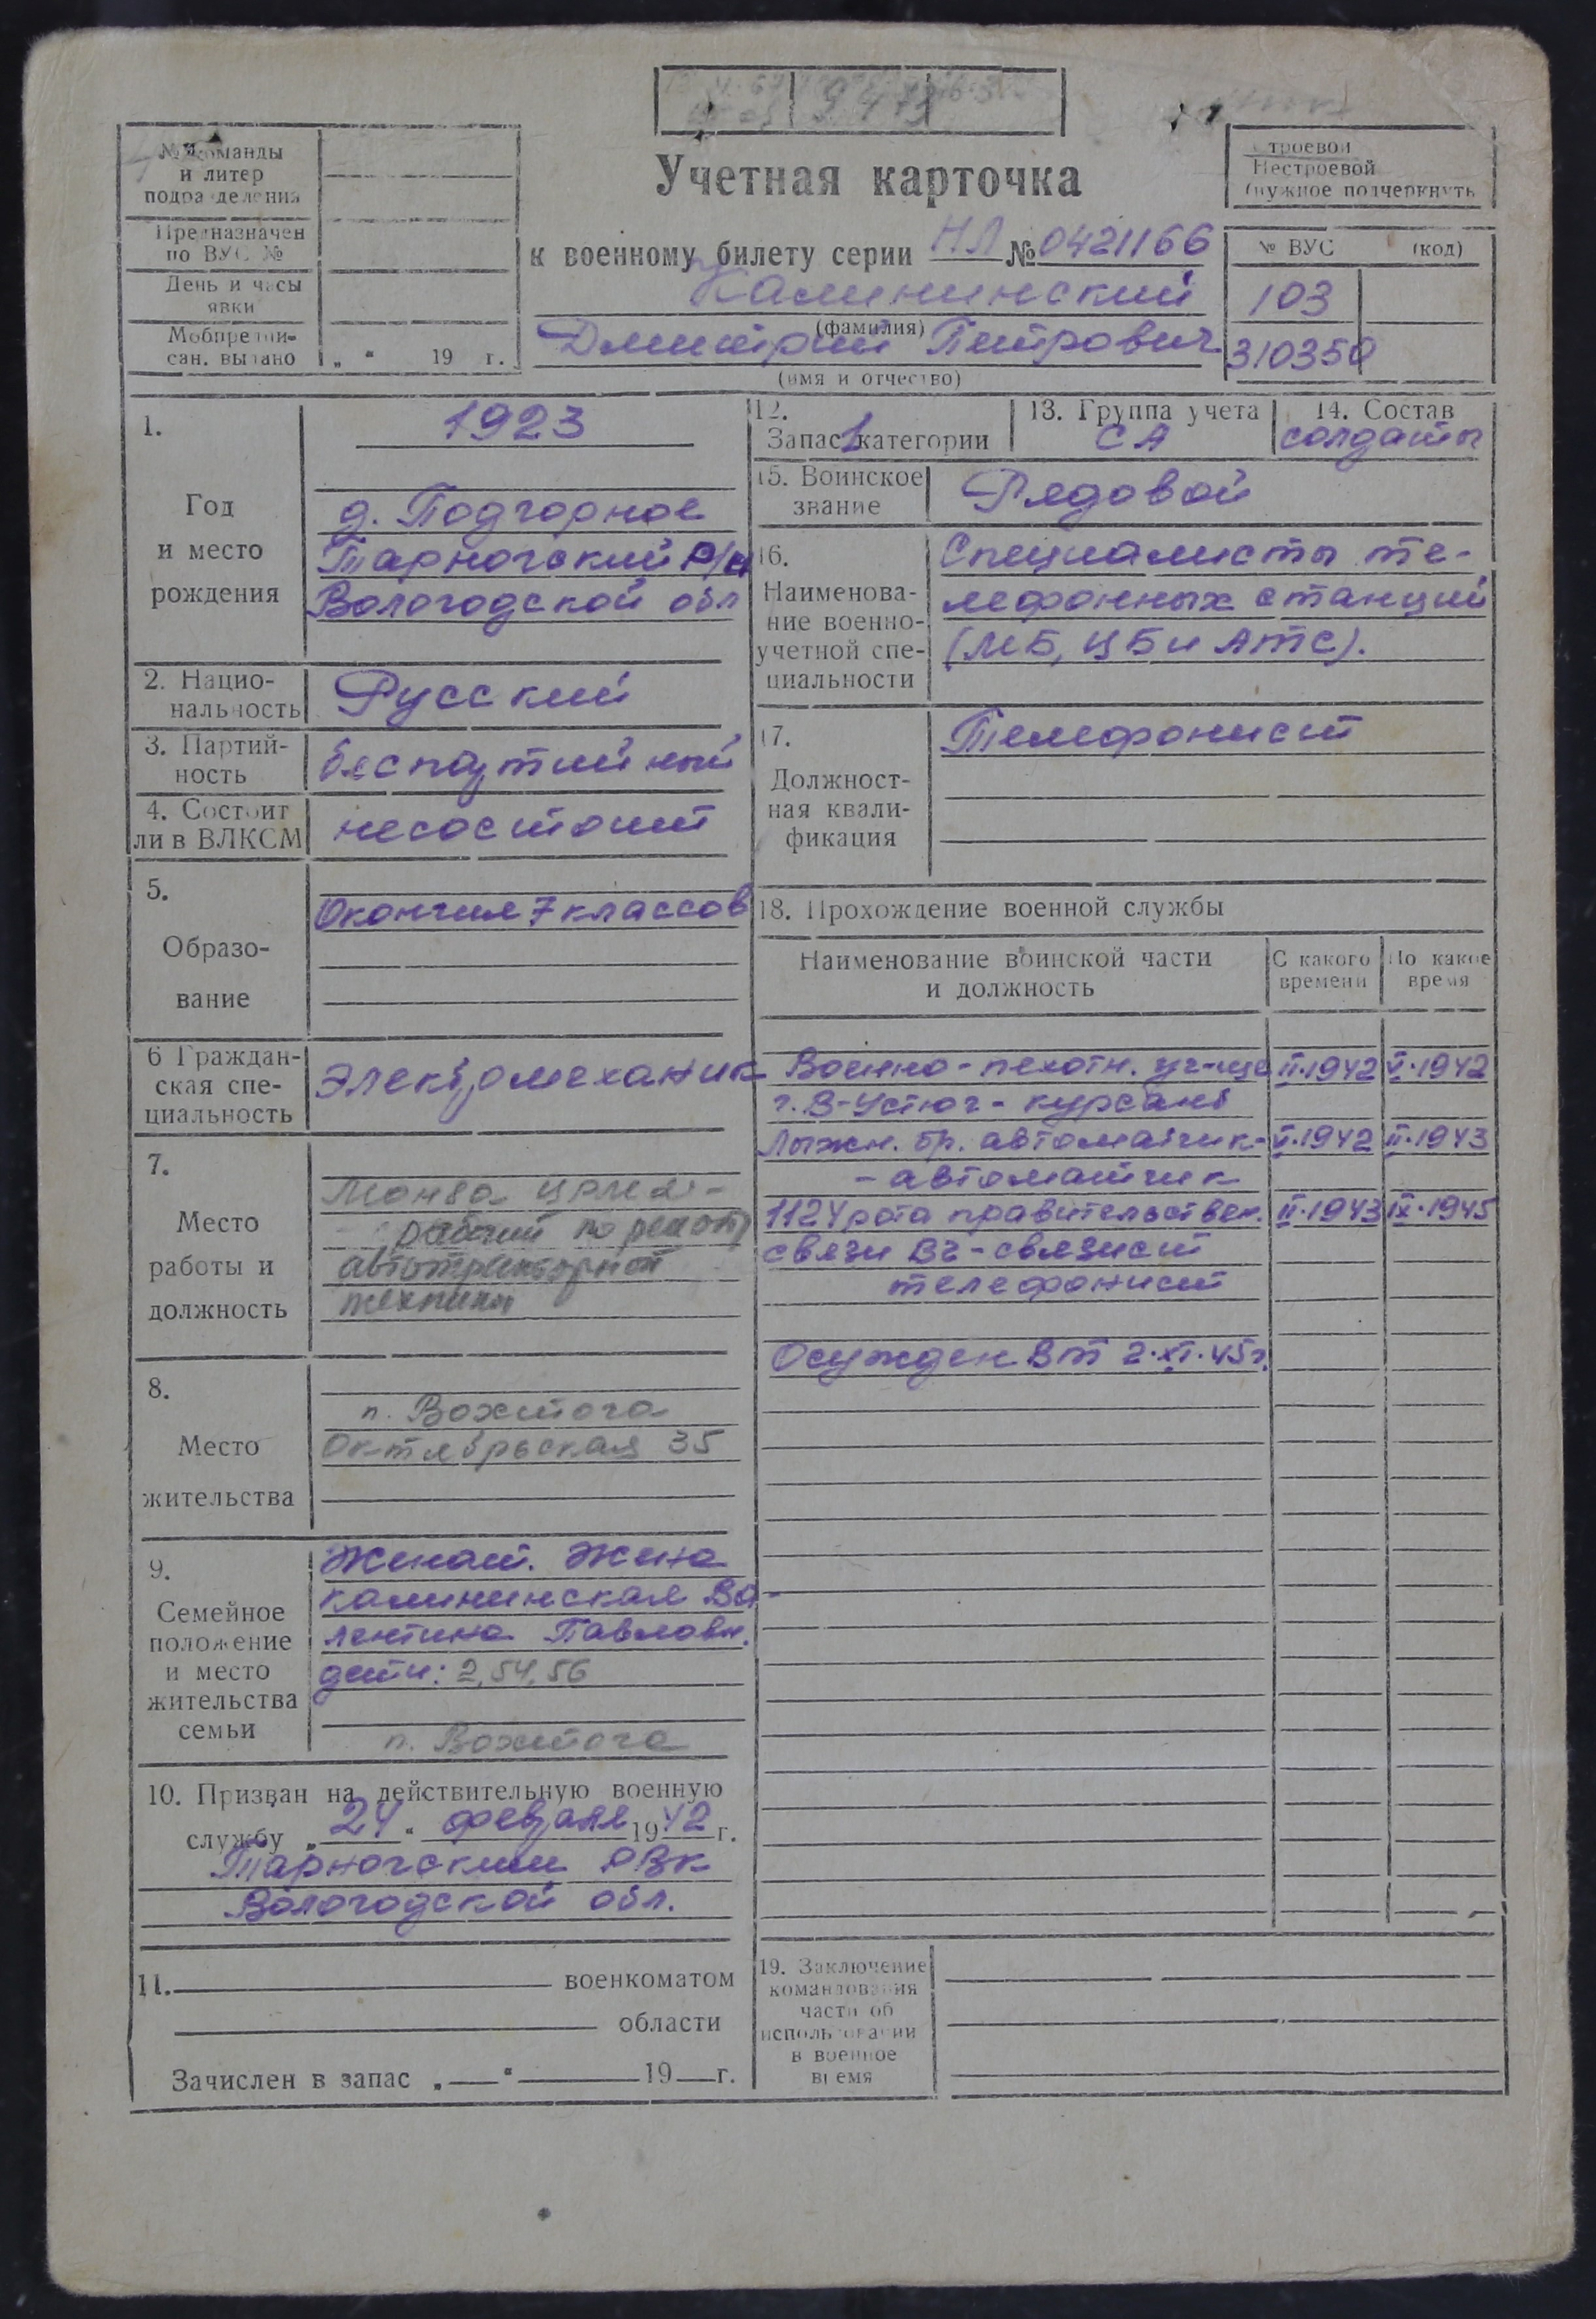 № команды
и литер
подразделения
Предназначен
по ВУС №
День и часы
явки
Мобпредпи-
сан. выдано „ “ 19 г.
Учетная карточка
к военному билету серии НЛ № 0421166
Калининский
(фамилия)
Дмитрий Петрович
(имя и отчество)
Строевой
Нестроевой
(нужное подчеркнуть
№ ВУС (код)
103
310350
1.
Год
и место
рождения
1923
д. Подгорное
Тарногский р/н
Вологодской обл
2. Нацио-
нальность
Русский
3. Партий-
ность
беспартийный
4. Состоит
ли в ВЛКСМ
несостоит
5.
Образо-
вание
Окончил 7 классов
6 Граждан-
ская спе-
циальность
Электромеханик
7.
Место
работы и
должность
рабочий по ремонту
автотракторной
техники
8.
Место
жительства
п. Вохтога
Октябрьская 35
9.
Семейное
положение
и место
жительства
семьи
Женат. Жена
Калининская Ва-
лентина Павловн.
дети: 2,54,56
п. Вохтога
10. Призван на действительную военную
службу „24“ февраля 1942 г.
Тарногским РВК
Вологодской обл.
11. военкоматом
области
Зачислен в запас „ “ 19 г.
12.
Запас 1 категории
13. Группа учета
СА
14. Состав
солдаты
15. Воинское
звание
Рядовой
16.
Наименова-
ние военно-
учетной спе-
циальности
Специалисты те-
лефонных станций
(МБ, ЦБ и АТС).
17.
Должност-
ная квали-
фикация
Телефонист
18. Прохождение военной службы
Наименование воинской части
и должность
С какого
времени
По какое
время
Военно-пехотн. уч-ще II.1942 V.1942
г. В-Устюг - курсант
Лыжн. бр. автоматчик- V.1942 II.1943
- автоматчик
1124 рота правительствен. II.1943 IX.1945
связи ВЧ - связист
телефонист
Осужден ВТ 2.XI.45г.
19. Заключение
командования
части об
использовании
в военное
время